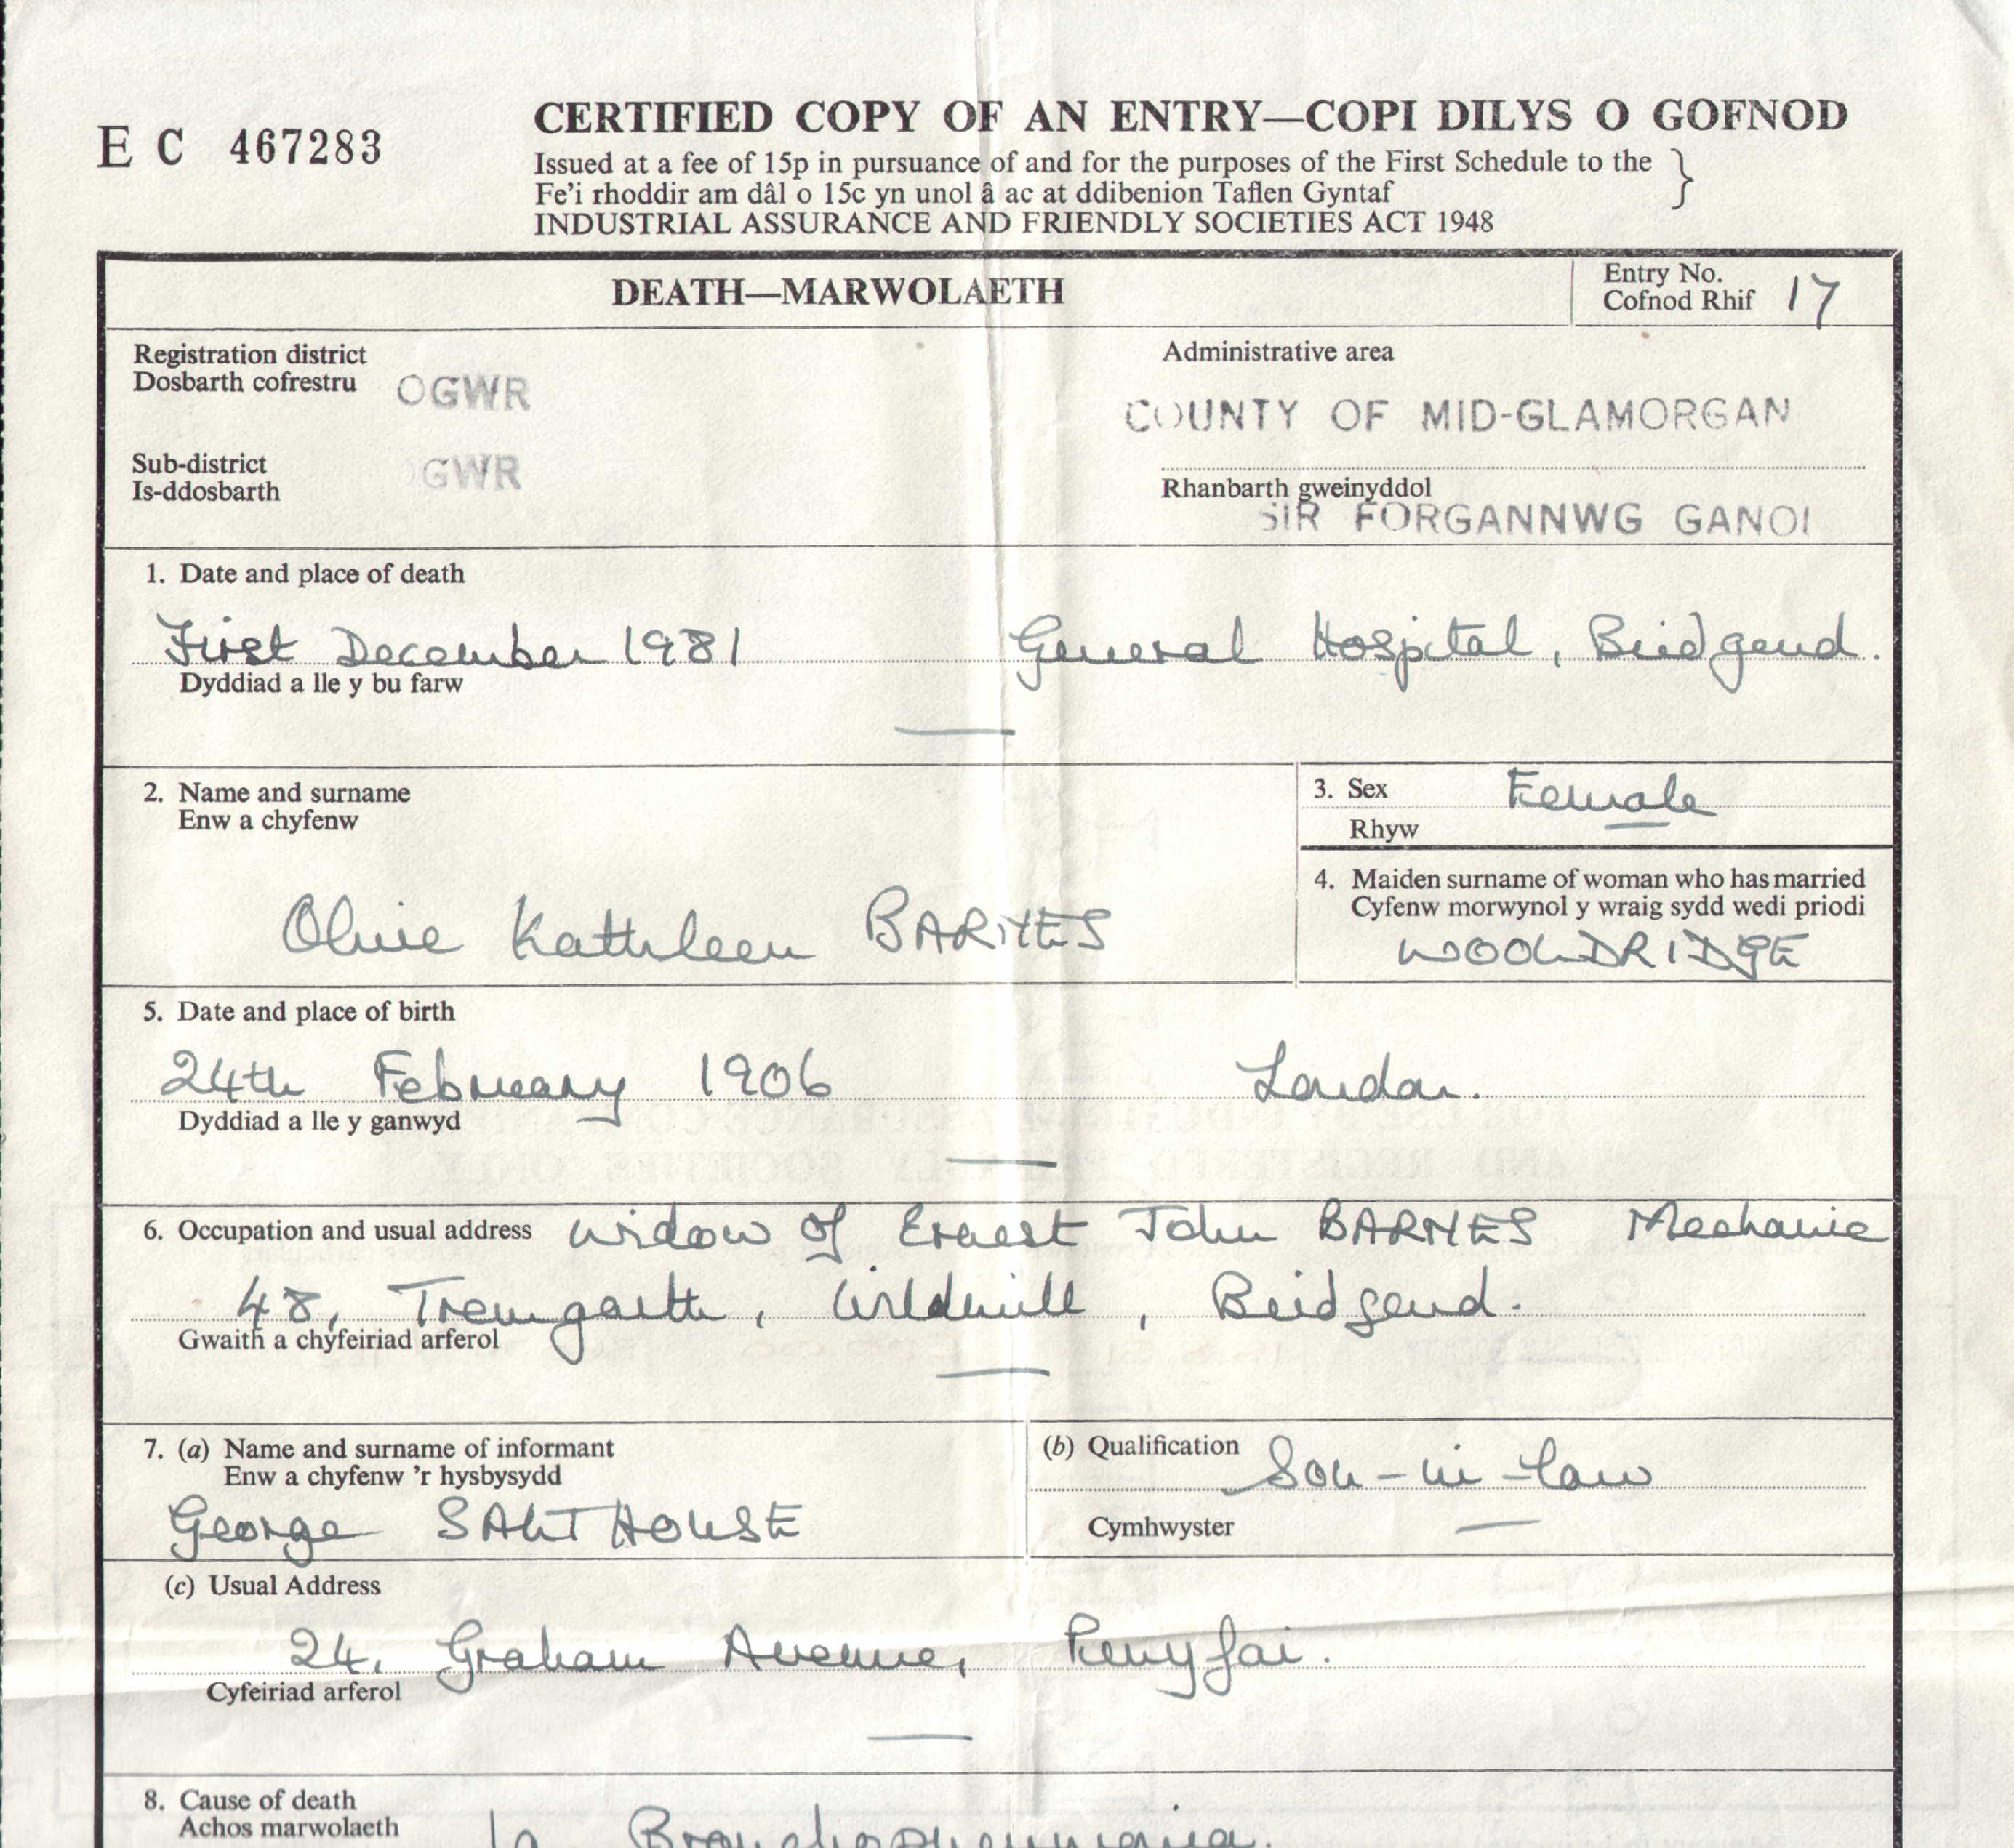 E C 467283
CERTIFIED COPY OF AN ENTRY—COPI DILYS O GOFNOD
Issued at a fee of 15p in pursuance of and for the purposes of the First Schedule to the }
Fe'i rhoddir am dâl o 15c yn unol â ac at ddibenion Taflen Gyntaf
INDUSTRIAL ASSURANCE AND FRIENDLY SOCIETIES ACT 1948
DEATH—MARWOLAETH
Entry No.
Cofnod Rhif 17
Registration district
Dosbarth cofrestru OGWR
Administrative area
COUNTY OF MID-GLAMORGAN
Sub-district
Is-ddosbarth OGWR
Rhanbarth gweinyddol
SIR FORGANNWG GANOL
1. Date and place of death
First December 1981 General Hospital, Bridgend.
Dyddiad a lle y bu farw
2. Name and surname
Enw a chyfenw
Olive Kathleen BARNES
3. Sex Female
Rhyw
4. Maiden surname of woman who has married
Cyfenw morwynol y wraig sydd wedi priodi
WOOLDRIDGE
5. Date and place of birth
24th February 1906 London.
Dyddiad a lle y ganwyd
6. Occupation and usual address Widow of Ernest John BARNES Mechanic
48, Tremgarth, Wildmill, Bridgend.
Gwaith a chyfeiriad arferol
7. (a) Name and surname of informant
Enw a chyfenw 'r hysbysydd
George SALTHOUSE
(b) Qualification Son-in-law
Cymhwyster
(c) Usual Address
24, Graham Avenue, Penyfai.
Cyfeiriad arferol
8. Cause of death
Achos marwolaeth 1a Bronchopneumonia.